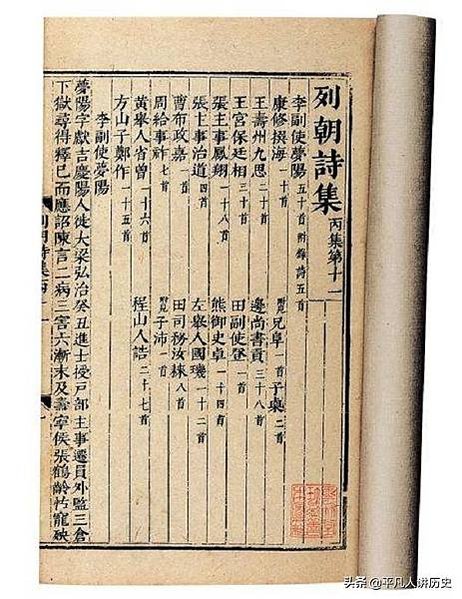 列朝詩集 丙集第十一
李副使夢陽 五十首 附錄詩五首
康修撰海 一十首 附見兄阜一首 子 二首
王壽州九思 二十首 邊尚書貢 三十八首
王宮保廷相 三十首 田副使登 一首
張主事鳳翔 一十八首 熊御史卓 一十四首
張主事治道 四首 左舉人國璣 一十二首
曹布政嘉 一首 田司務汝 八首
周給事祚 七首 附見子沛一首
黃舉人省曾 一十六首 程山人誥 二十七首
方山子鄭作 一十五首
李副使夢陽
夢陽字獻吉慶陽人徙大梁弘治癸丑進士授戶部主事遷員外監三倉
下獄尋得釋已而應詔陳言二病三害六漸末及壽寧侯張鶴齡怙寵殃
列朝詩集丙
头条 @平凡人讲历史